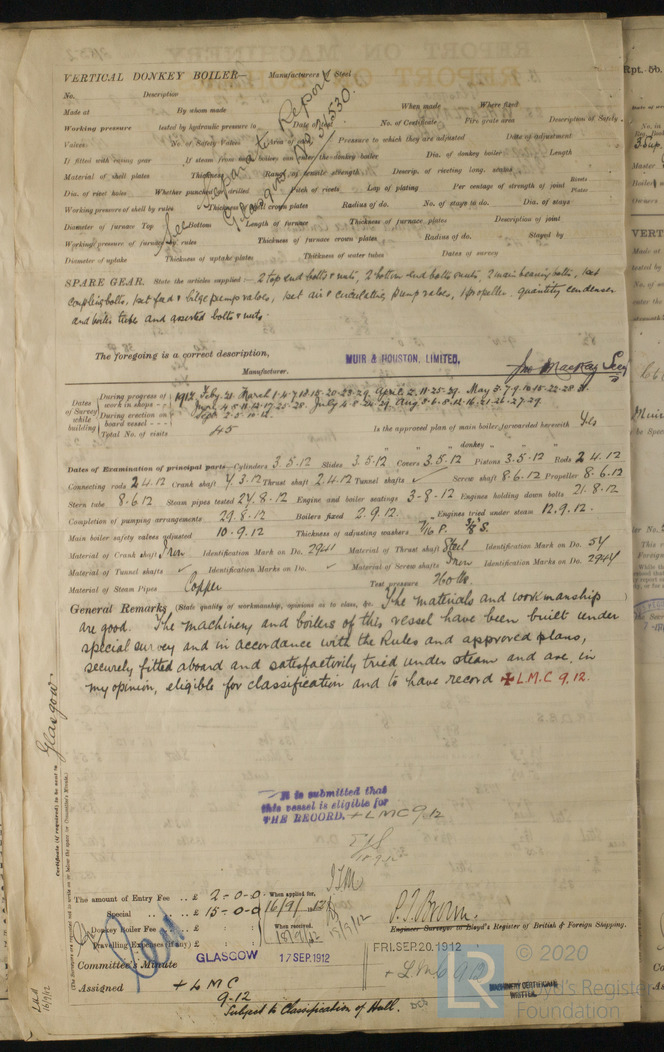 VERTICAL DONKEY BOILER— Manufacturers of Steel
No. Description
Made at By whom made When made Where fixed
Working pressure tested by hydraulic pressure to Date of No. of Certificate Fire grate area Description of Safety
Valves No. of Safety Valves Area of each Pressure to which they are adjusted Date of adjustment
If fitted with easing gear If steam from main boilers can enter the donkey boiler Dia. of donkey boiler Length
Material of shell plates Thickness Range of tensile strength Descrip. of riveting long. seams
Dia. of rivet holes Whether punched or drilled Pitch of rivets Lap of plating Per centage of strength of joint Rivets Plates
Working pressure of shell by rules Thickness of shell crown plates Radius of do. No. of stays to do. Dia. of stays
Diameter of furnace Top Bottom Length of furnace Thickness of furnace plates Description of joint
Working pressure of furnace by rules Thickness of furnace crown plates Radius of do. Stayed by
Diameter of uptake Thickness of uptake plates Thickness of water tubes Dates of survey
See separate Report
Glasgow No 32530.
SPARE GEAR. State the articles supplied:— 2 top end bolts & nuts, 2 bottom end bolts & nuts, 2 main bearing bolts, 1 set
coupling bolts, 1 set feed & bilge pump valves, 1 set air & circulating pump valves, 1 propeller, quantity condenser
and boiler tubes and assorted bolts & nuts.
The foregoing is a correct description,
MUIR & HOUSTON, LIMITED. Jno MacKay Secy
Manufacturer.
Dates of Survey while building
During progress of work in shops - - 1912. Feby. 21. March 1.4.7.13.18.20.23.29. April 2.11.25.29. May 3.7.9.10.15.22.28.31.
During erection on board vessel - - - June 4.8.11.12.17.25.28. July 4.8.24.29. Aug 3.6.8.12.16.21.26.27.29.
Sept 2.5.10.12.
Total No. of visits 45 Is the approved plan of main boiler forwarded herewith Yes
" " " donkey " " "
Dates of Examination of principal parts—Cylinders 3.5.12 Slides 3.5.12 Covers 3.5.12 Pistons 3.5.12 Rods 2.4.12
Connecting rods 2.4.12 Crank shaft 7.3.12 Thrust shaft 2.4.12 Tunnel shafts ✓ Screw shaft 8.6.12 Propeller 8.6.12
Stern tube 8.6.12 Steam pipes tested 27.8.12 Engine and boiler seatings 3.8.12 Engines holding down bolts 21.8.12
Completion of pumping arrangements 29.8.12 Boilers fixed 2.9.12. Engines tried under steam 12.9.12.
Main boiler safety valves adjusted 10.9.12 Thickness of adjusting washers 7/16 P. 3/8 S.
Material of Crank shaft Iron Identification Mark on Do. 2941 Material of Thrust shaft Steel Identification Mark on Do. 54
Material of Tunnel shafts ✓ Identification Marks on Do. ✓ Material of Screw shafts Iron Identification Marks on Do. 2944
Material of Steam Pipes Copper Test pressure 400 lbs.
General Remarks (State quality of workmanship, opinions as to class, &c. The materials and workmanship
are good. The machinery and boilers of this vessel have been built under
special survey and in accordance with the Rules and approved plans,
securely fitted aboard and satisfactorily tried under steam and are, in
my opinion, eligible for classification and to have record ✠ L.M.C 9.12.
It is submitted that
this vessel is eligible for
THE RECORD. + LMC 9.12
18.9.12
Certificate (if required) to be sent to Glasgow.
(The Surveyors are requested not to write on or below the space for Committee's Minute.)
The amount of Entry Fee .. £ 2 - 0 - 0 When applied for,
Special .. .. .. £ 15 - 0 - 0 16/9/1912
Donkey Boiler Fee .. .. £ : : When received,
Travelling Expenses (if any) £ : : 18/9/12 18/9/12
Engineer Surveyor to Lloyd's Register of British & Foreign Shipping.
Committee's Minute GLASGOW 17 SEP. 1912
FRI. SEP. 20. 1912
+ LMC 9.12
Assigned + L M C
9-12
Subject to Classification of Hull.
MACHINERY CERTIFICATE
WRITTEN
16/9/12
© 2020
LR
Lloyd's Register
Foundation
Rpt. 5b.